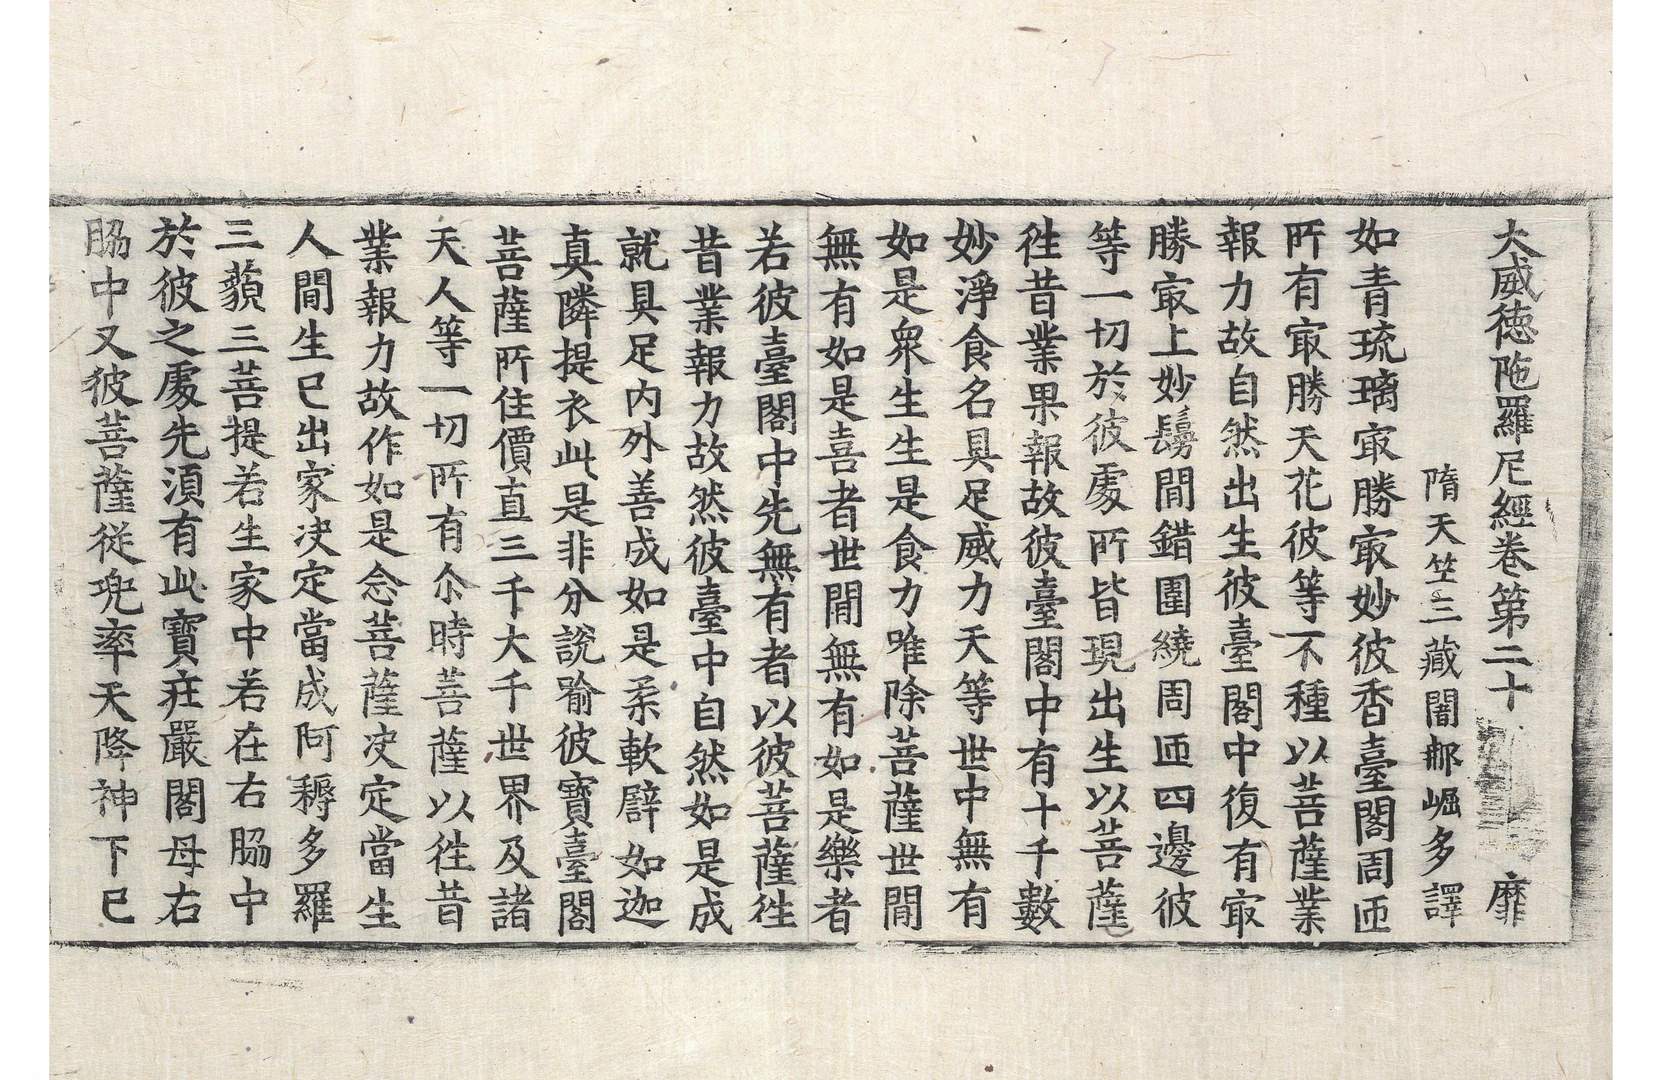 大威徳陁羅尼經卷第二十 靡
隋天竺三藏闍𨚗崛多譯
如青琉璃㝡勝㝡妙彼香臺閣周迊
所有㝡勝天花彼等不種以菩薩業
報力故自然出生彼臺閣中復有㝡
勝㝡上妙鬘間錯圍繞周迊四邊彼
等一切於彼處所皆現出生以菩薩
徃昔業果報故彼臺閣中有十千數
妙淨食名具足威力天等世中無有
如是衆生生是食力唯除菩薩世間
無有如是喜者世間無有如是樂者
若彼臺閣中先無有者以彼菩薩徃
昔業報力故然彼臺中自然如是成
就具足内外善成如是柔軟譬如迦
真隣提衣此是非分說喻彼寶臺閣
菩薩所住價直三千大千世界及諸
天人等一切所有尒時菩薩以徃昔
業報力故作如是念菩薩决定當生
人間生已出家决定當成阿耨多羅
三藐三菩提若生家中若在右脇中
於彼之處先須有此寶莊嚴閣母右
脇中又彼菩薩從兜率天降神下已